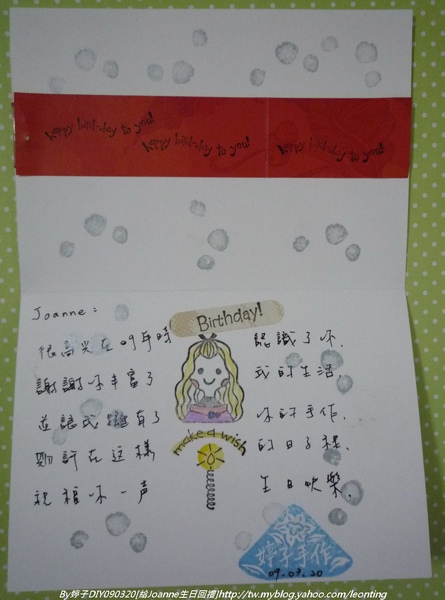 happy birth-day to you! happy birth-day to you! happy birth-day to you!
Joanne:
Birthday!
很高興在09年時 認識了你.
謝謝你丰富了 我的生活.
並讓我擁有了 你的手作.
make a wish
期許在這樣 的日子裡.
祝福你一声 生日快樂.
婷子手作
09.03.20
By婷子DIY090320[給Joanne生日回禮]http://tw.myblog.yahoo.com/leonting